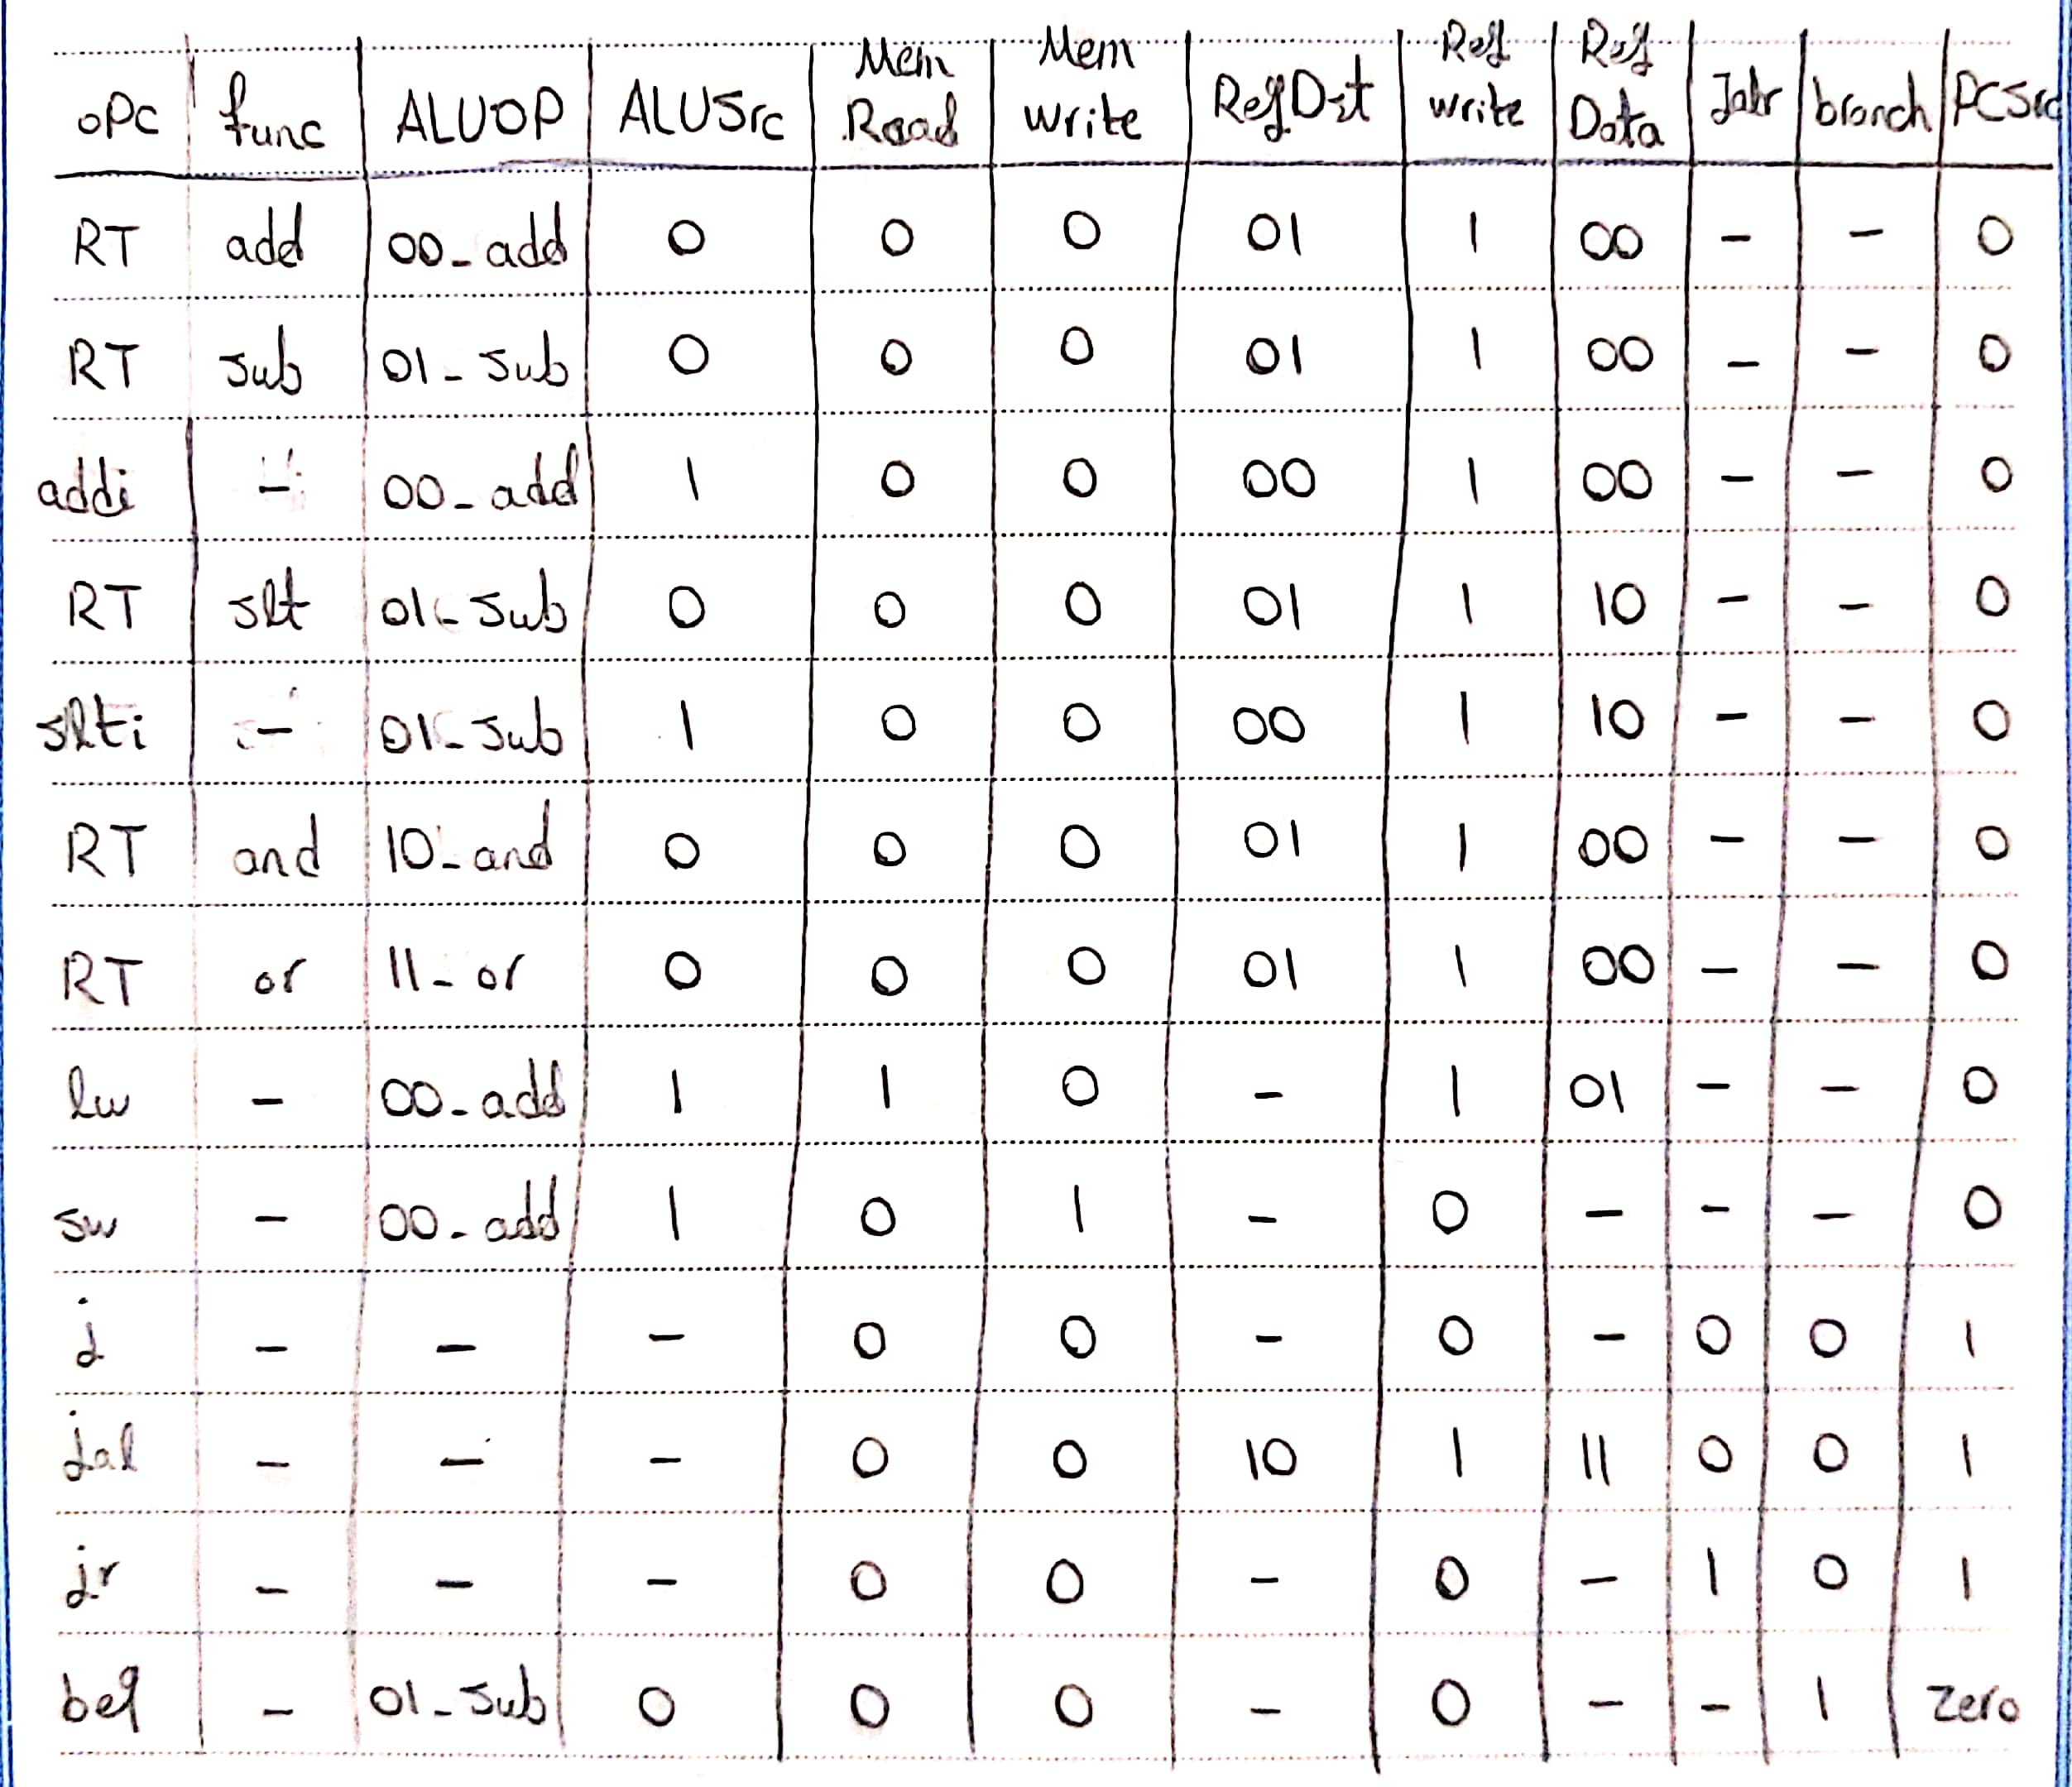 oPc func ALUOP ALUSrc Mem Read Mem write RegDst Reg write Reg Data branch PCSrc
RT add 00_add 0 0 0 01 1 00 - - 0
RT sub 01_sub 0 0 0 01 1 00 - - 0
addi - 00_add 1 0 0 00 1 00 - - 0
RT slt 01_sub 0 0 0 01 1 10 - - 0
slti - 01_sub 1 0 0 00 1 10 - - 0
RT and 10_and 0 0 0 01 1 00 - - 0
RT or 11_or 0 0 0 01 1 00 - - 0
lw - 00_add 1 1 0 - 1 01 - - 0
sw - 00_add 1 0 1 - 0 - - - 0
j - - - 0 0 - 0 - 0 0 1
jal - - - 0 0 10 1 11 0 0 1
jr - - - 0 0 - 0 - 1 0 1
beq - 01_sub 0 0 0 - 0 - - 1 zero